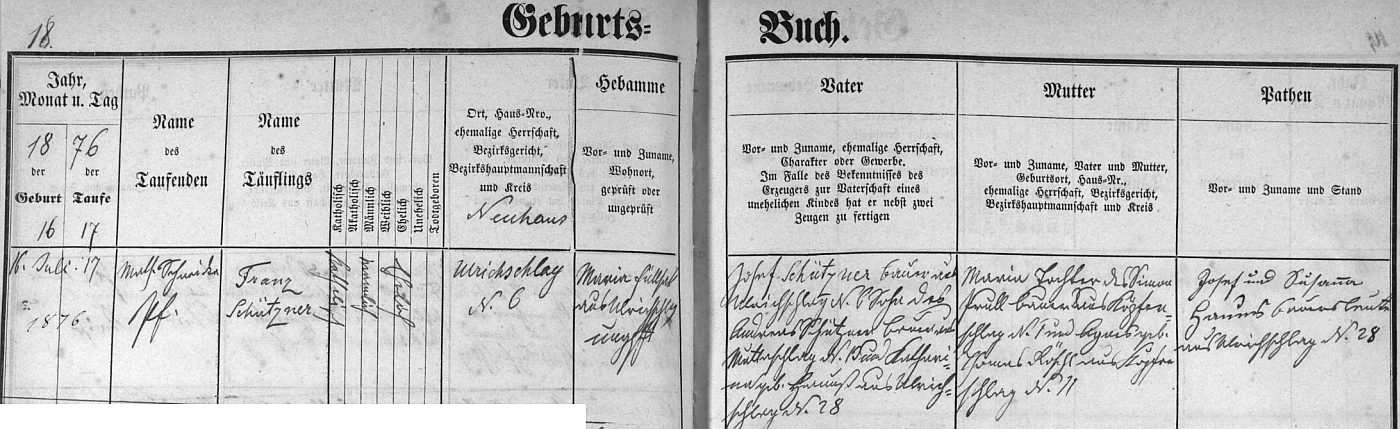 18.
Geburts=
Buch.
Jahr,
Monat u. Tag
18 76
der der
Geburt Taufe
16 17
Name
des
Taufenden
Name
des
Täuflings
Katholisch
Akatholisch
Männlich
Weiblich
Ehelich
Unehelich
Todtgeboren
Ort, Haus-Nro.,
ehemalige Herrschaft,
Bezirksgericht,
Bezirkshauptmannschaft
und Kreis
Neuhaus
Hebamme
Vor- und Zuname,
Wohnort,
geprüft oder
ungeprüft
Vater
Vor- und Zuname, ehemalige Herrschaft,
Charakter oder Gewerbe.
Im Falle des Bekenntnisses des
Erzeugers zur Vaterschaft eines
unehelichen Kindes hat er nebst zwei
Zeugen zu fertigen
Mutter
Vor- und Zuname, Vater und Mutter,
Geburtsort, Haus-Nr.,
ehemalige Herrschaft, Bezirksgericht,
Bezirkshauptmannschaft und Kreis
Pathen
Vor- und Zuname und Stand
16. Juli. 17
1876.
Math. Schneider
Pf.
Franz
Schützner.
katholisch
männlich
ehelich
Ulrichschlag
N. 6
Maria
aus Ulrichschlag
ungepft
Josef Schützner Bauer aus
Ulrichschlag N. 6 Sohn des
Andreas Schützner Bauer aus
Mutaschlag N. und Kathari-
na geb. Hauns aus Ulrich-
schlag N. 28
Maria Tochter des Simon
Prull Bauer aus Köpfer-
schlag N. 1 und Agnes geb.
Thomas Röschl aus Köpfer
schlag N. 11
Josef und Susanna
Hauns Bauersleute
aus Ulrichschlag N. 28